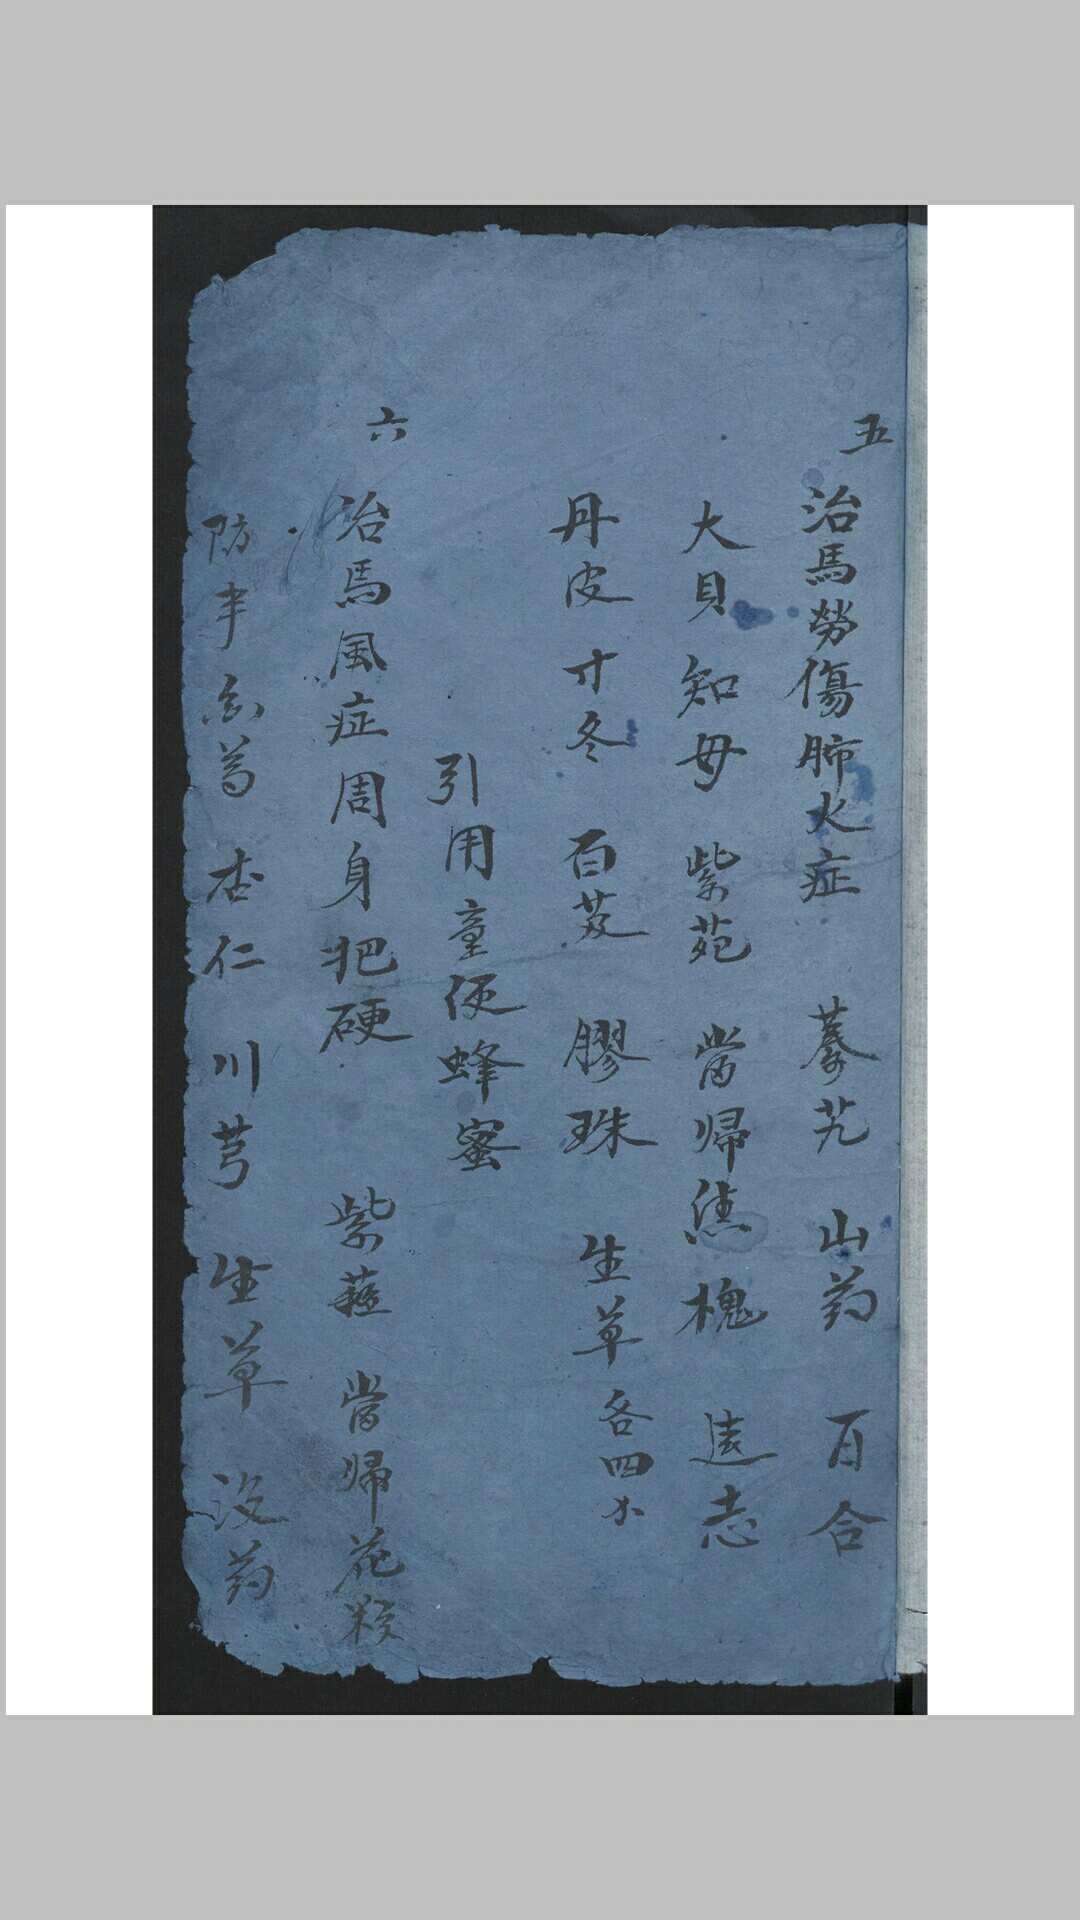 五
治馬勞傷肺火症 蓁艽 山药 百合
大貝 知母 紫菀 當歸 焦槐 遠志
丹皮 寸冬 百芨 膠珠 生草 各四
引用童便蜂蜜
六
治馬風症周身把硬 紫蘓 當歸 花粉
防 杏仁 川芎 生草 没药